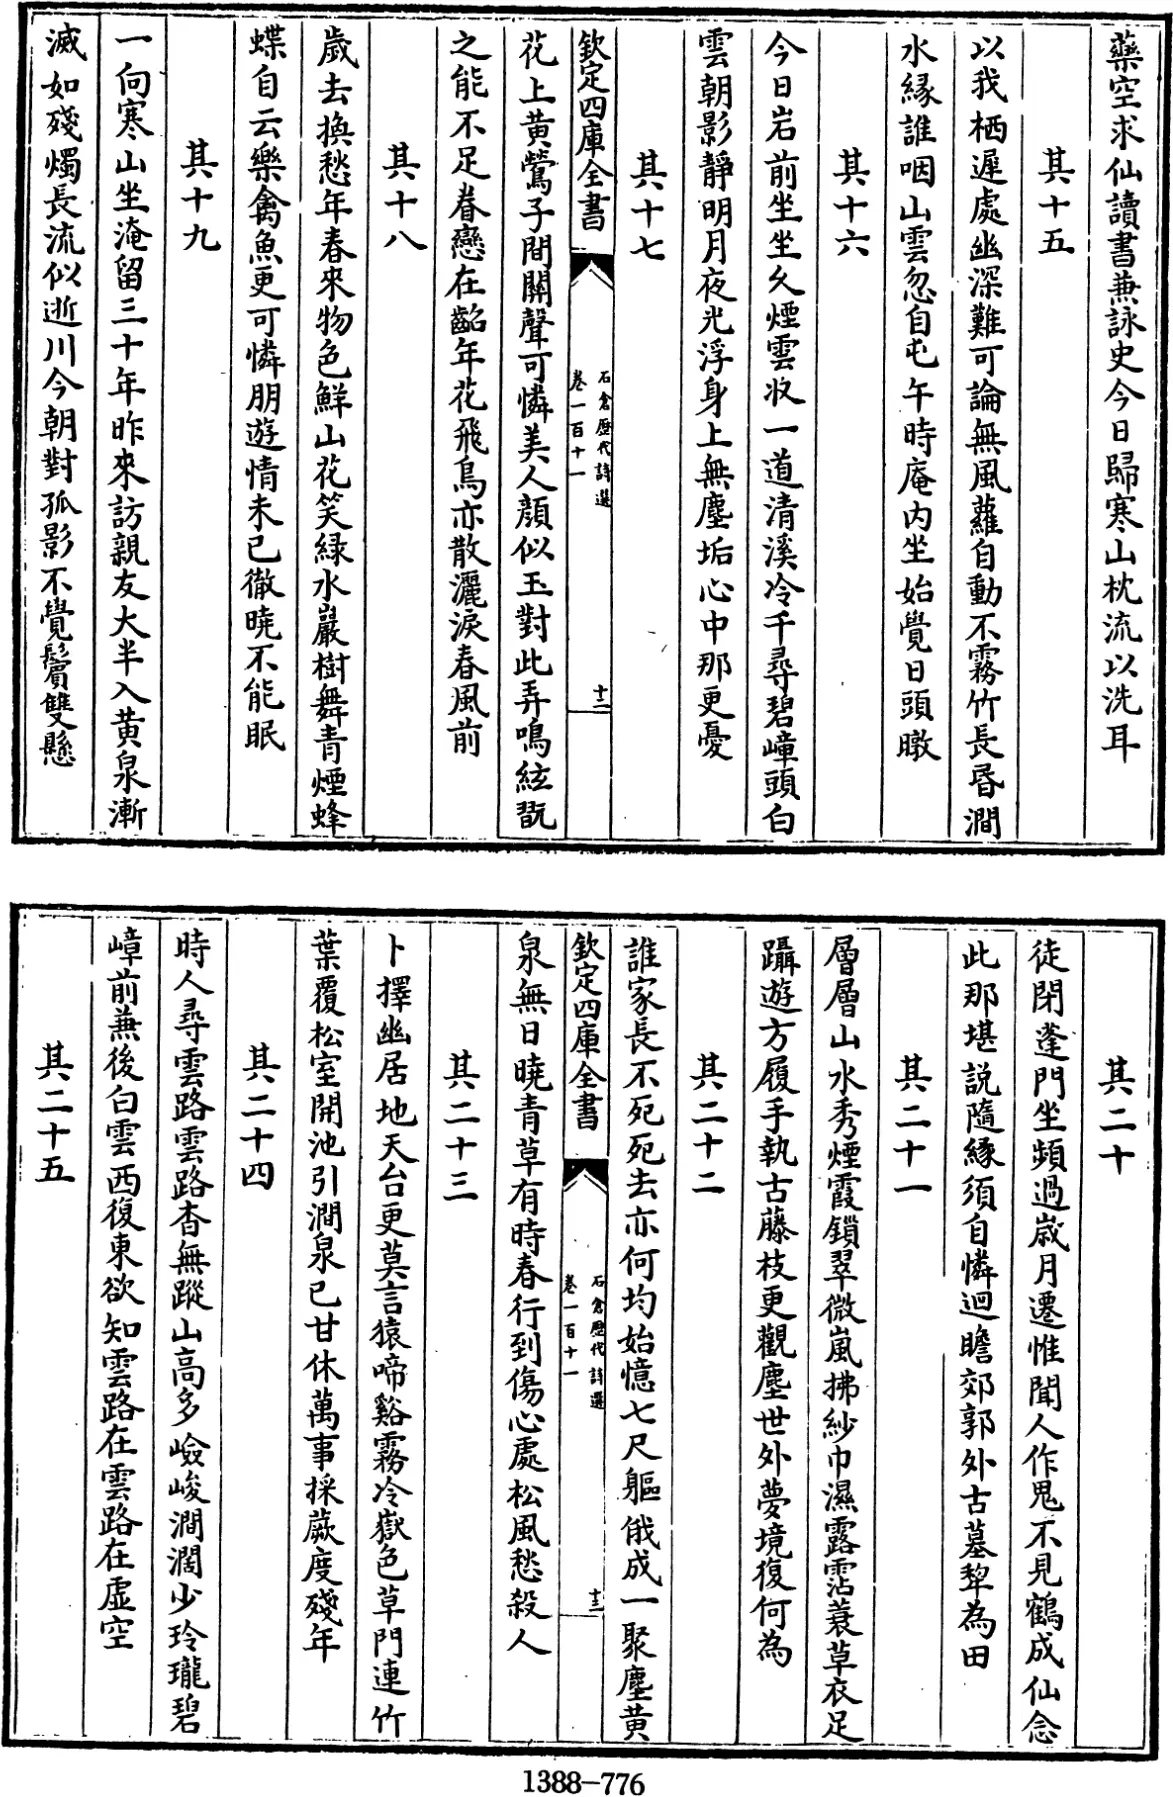 藥空求仙讀書兼詠史今日歸寒山枕流以洗耳
其十五
以我栖遲處幽深難可論無風蘿自動不霧竹長昏澗
水緣誰咽山雲忽自屯午時庵内坐始覺日頭暾
其十六
今日岩前坐坐久煙雲收一道清溪冷千尋碧嶂頭白
雲朝影靜明月夜光浮身上無塵垢心中那更憂
其十七
欽定四庫全書
石倉歷代詩選
卷一百十一
十二
花上黄鶯子間關聲可憐美人顔似玉對此弄鳴絃翫
之能不足眷戀在齠年花飛鳥亦散灑淚春風前
其十八
歲去換愁年春來物色鮮山花笑緑水巖樹舞青煙蜂
蝶自云樂禽魚更可憐朋遊情未已徹曉不能眠
其十九
一向寒山坐淹留三十年昨來訪親友大半入黄泉漸
滅如殘燭長流似逝川今朝對孤影不覺鬢雙懸
其二十
徒閉蓬門坐頻過歲月遷惟聞人作鬼不見鶴成仙念
此那堪説隨緣須自憐迴瞻郊郭外古墓犂為田
其二十一
層層山水秀煙霞鎖翠微嵐拂紗巾濕露霑蓑草衣足
躡遊方履手執古藤枝更觀塵世外夢境復何為
其二十二
誰家長不死死去亦何均始憶七尺軀俄成一聚塵黄
欽定四庫全書
石倉歷代詩選
卷一百十一
十三
泉無日曉青草有時春行到傷心處松風愁殺人
其二十三
卜擇幽居地天台更莫言猿啼谿霧冷嶽色草門連竹
葉覆松室開池引澗泉已甘休萬事採蕨度殘年
其二十四
時人尋雲路雲路杳無蹤山高多嶮峻澗濶少玲瓏碧
嶂前兼後白雲西復東欲知雲路在雲路在虚空
其二十五
1388-776